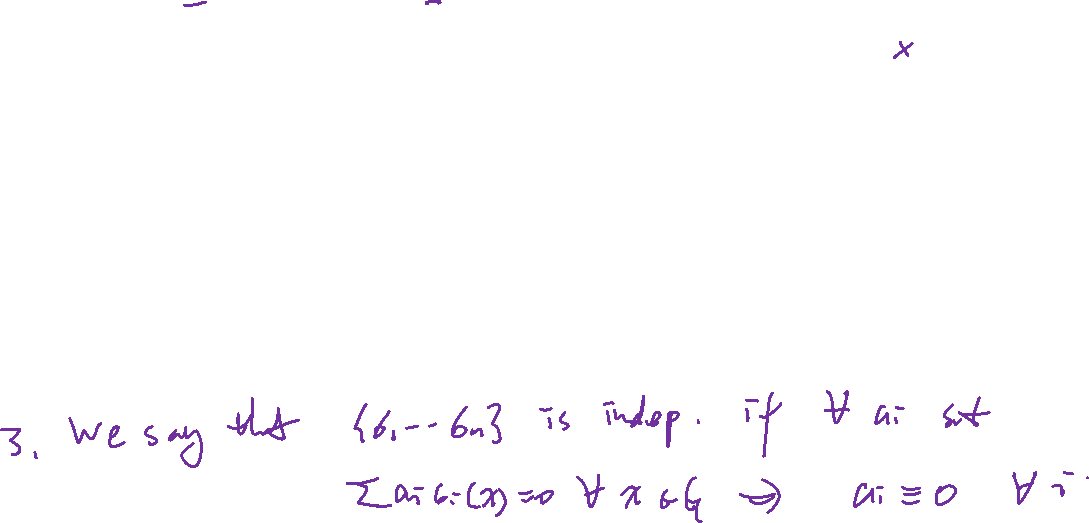 x
3. We say that {σ₁ -- σₙ} is indep. if ∀ aᵢ st
Σ aᵢ σᵢ(x) = 0 ∀ x ∈ G ⇒ aᵢ ≡ 0 ∀ i